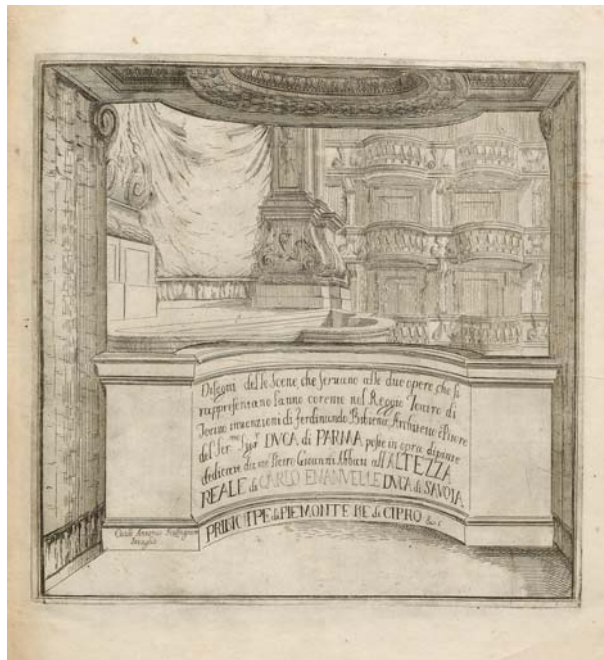 Disegni delle Scene, che seruano alle due opere, che si
rappresentano l'anno corente nel Reggio Teatro di
Torino inuenzioni di Ferdinando Bibiena Architetto e Pitore
del Ser.mo Sig.r DVCA di PARMA poste in opra dipinte
dedicate da me Pietro Giouanni Abbati all ALTEZZA
REALE di CARLO EMANVELLE DVCA di SAVOIA
PRINCIPE di PIEMONTE RE di CIPRO
Antonio